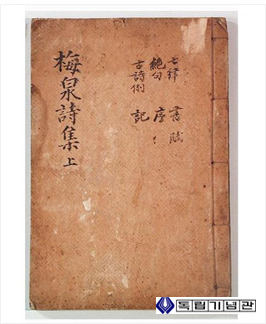 七律 書 賦
絶句 序
古詩例 記
梅泉詩集 上
독립기념관